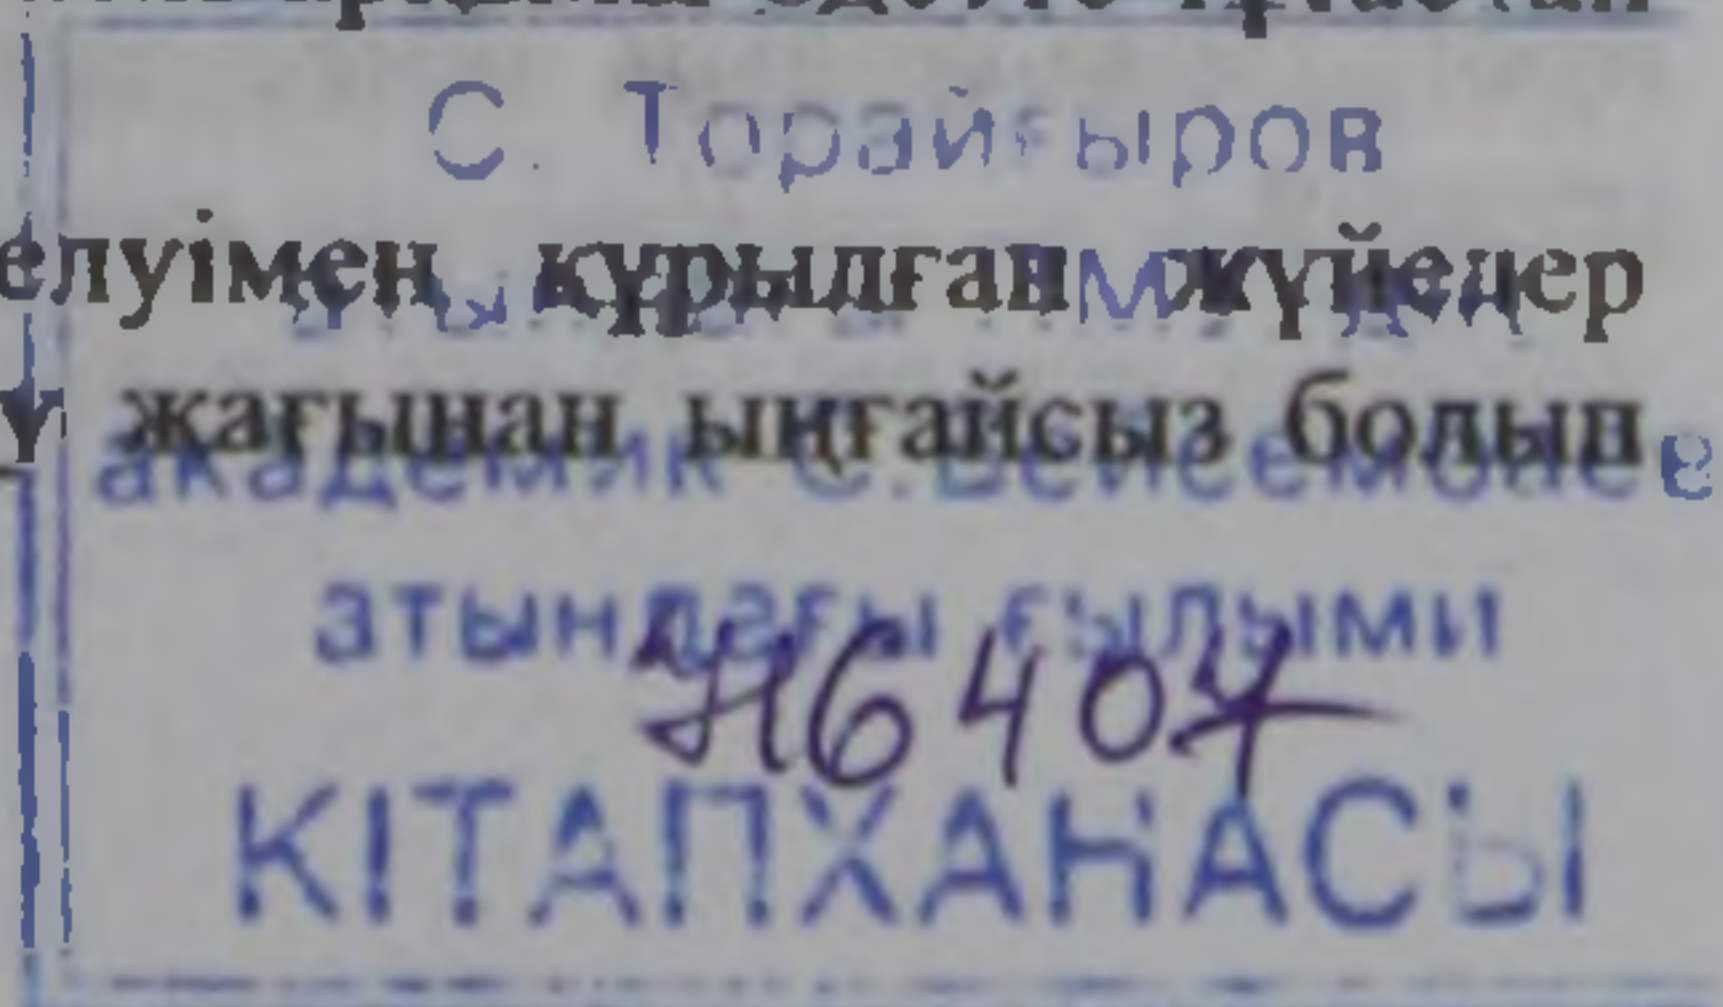 С. Торайғыров
елуімен құрылған жүйелер
жағынан ыңғайсыз болып
академик С.Бейсембаев
атындағы ғылыми
Н6407
КІТАПХАНАСЫ